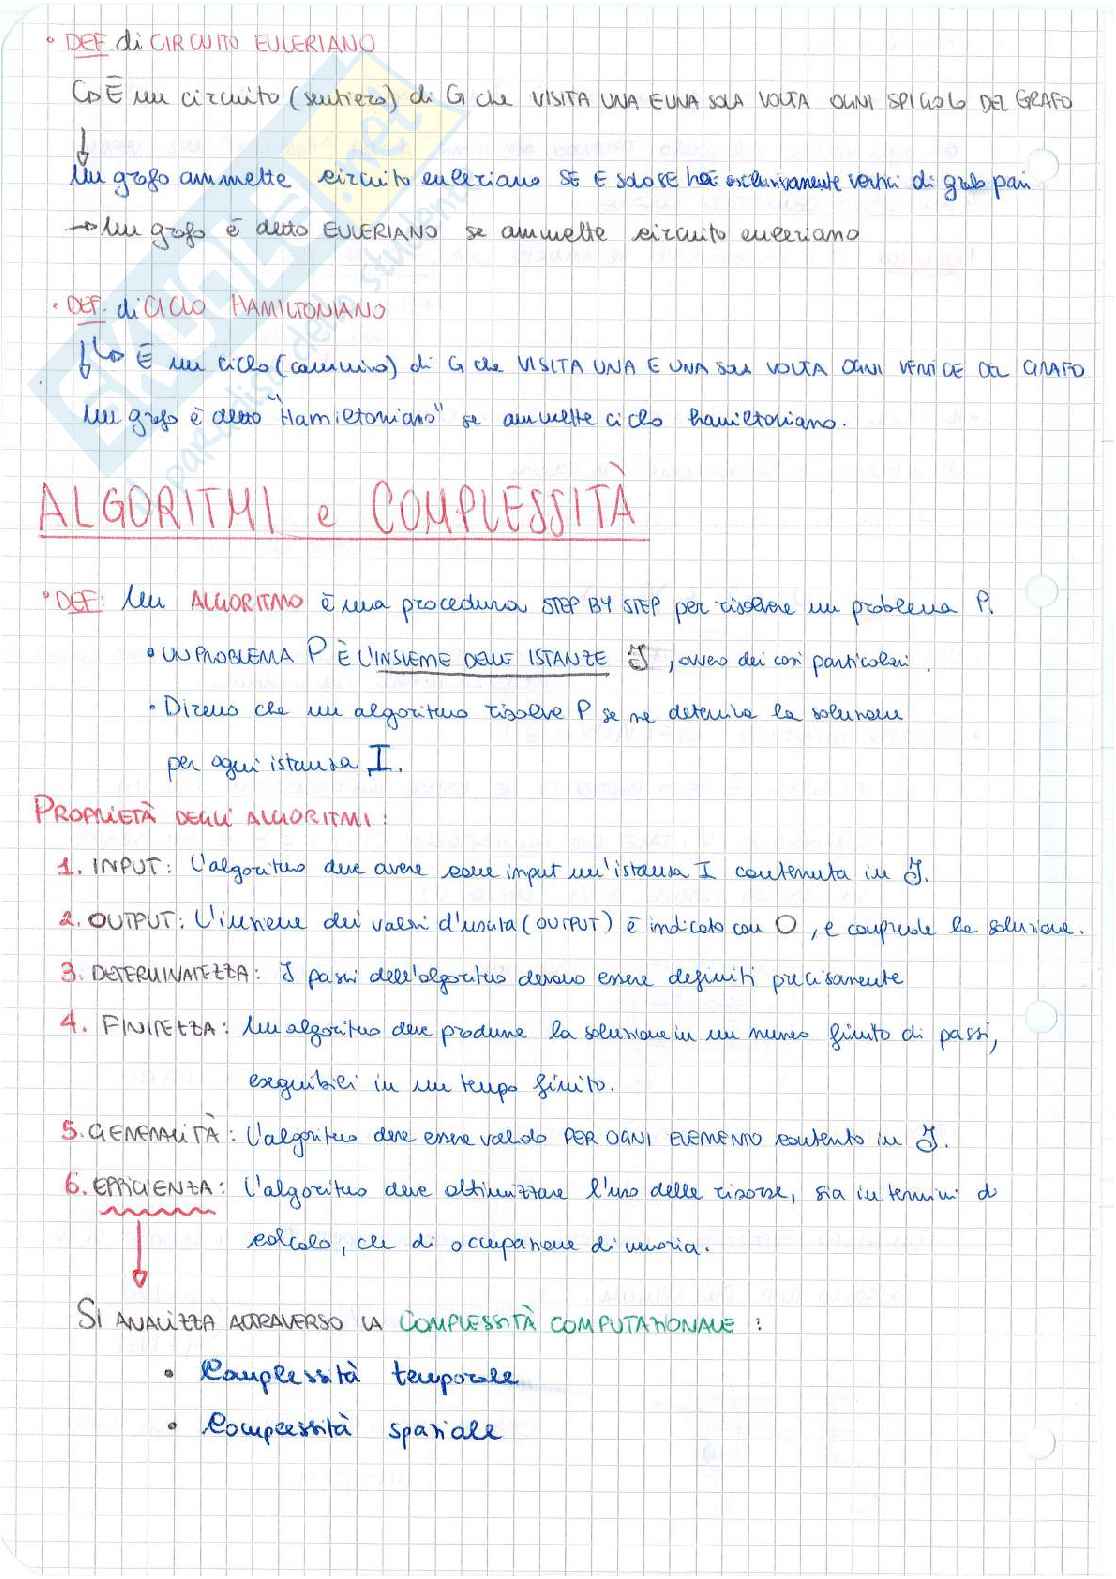 • DEF di CIRCUITO EULERIANO
↳ È un circuito (sentiero) di G che VISITA UNA E UNA SOLA VOLTA OGNI SPIGOLO DEL GRAFO
↓
Un grafo ammette circuito euleriano SE E SOLO SE ha esclusivamente vertici di grado pari
→ Un grafo è detto EULERIANO se ammette circuito euleriano
• DEF. di CICLO HAMILTONIANO
↓ ↳ È un ciclo (cammino) di G che VISITA UNA E UNA SOLA VOLTA OGNI VERTICE DEL GRAFO
Un grafo è detto "Hamiltoniano" se ammette ciclo hamiltoniano.
ALGORITMI e COMPLESSITÀ
• DEF: Un ALGORITMO è una procedura STEP BY STEP per risolvere un problema P.
• UN PROBLEMA P È L'INSIEME DELLE ISTANZE J, ovvero dei casi particolari.
• Diremo che un algoritmo risolve P se ne determina la soluzione
per ogni istanza I.
PROPRIETÀ DEGLI ALGORITMI:
1. INPUT: L'algoritmo deve avere come input un'istanza I contenuta in J.
2. OUTPUT: L'insieme dei valori d'uscita (OUTPUT) è indicato con O, e comprende la soluzione.
3. DETERMINATEZZA: I passi dell'algoritmo devono essere definiti precisamente
4. FINITEZZA: Un algoritmo deve produrre la soluzione in un numero finito di passi,
eseguibili in un tempo finito.
5. GENERALITÀ: L'algoritmo deve essere valido PER OGNI ELEMENTO contenuto in J.
6. EFFICIENZA: L'algoritmo deve ottimizzare l'uso delle risorse, sia in termini di
calcolo, che di occupazione di memoria.
SI ANALIZZA ATTRAVERSO LA COMPLESSITÀ COMPUTAZIONALE:
• Complessità temporale
• Complessità spaziale